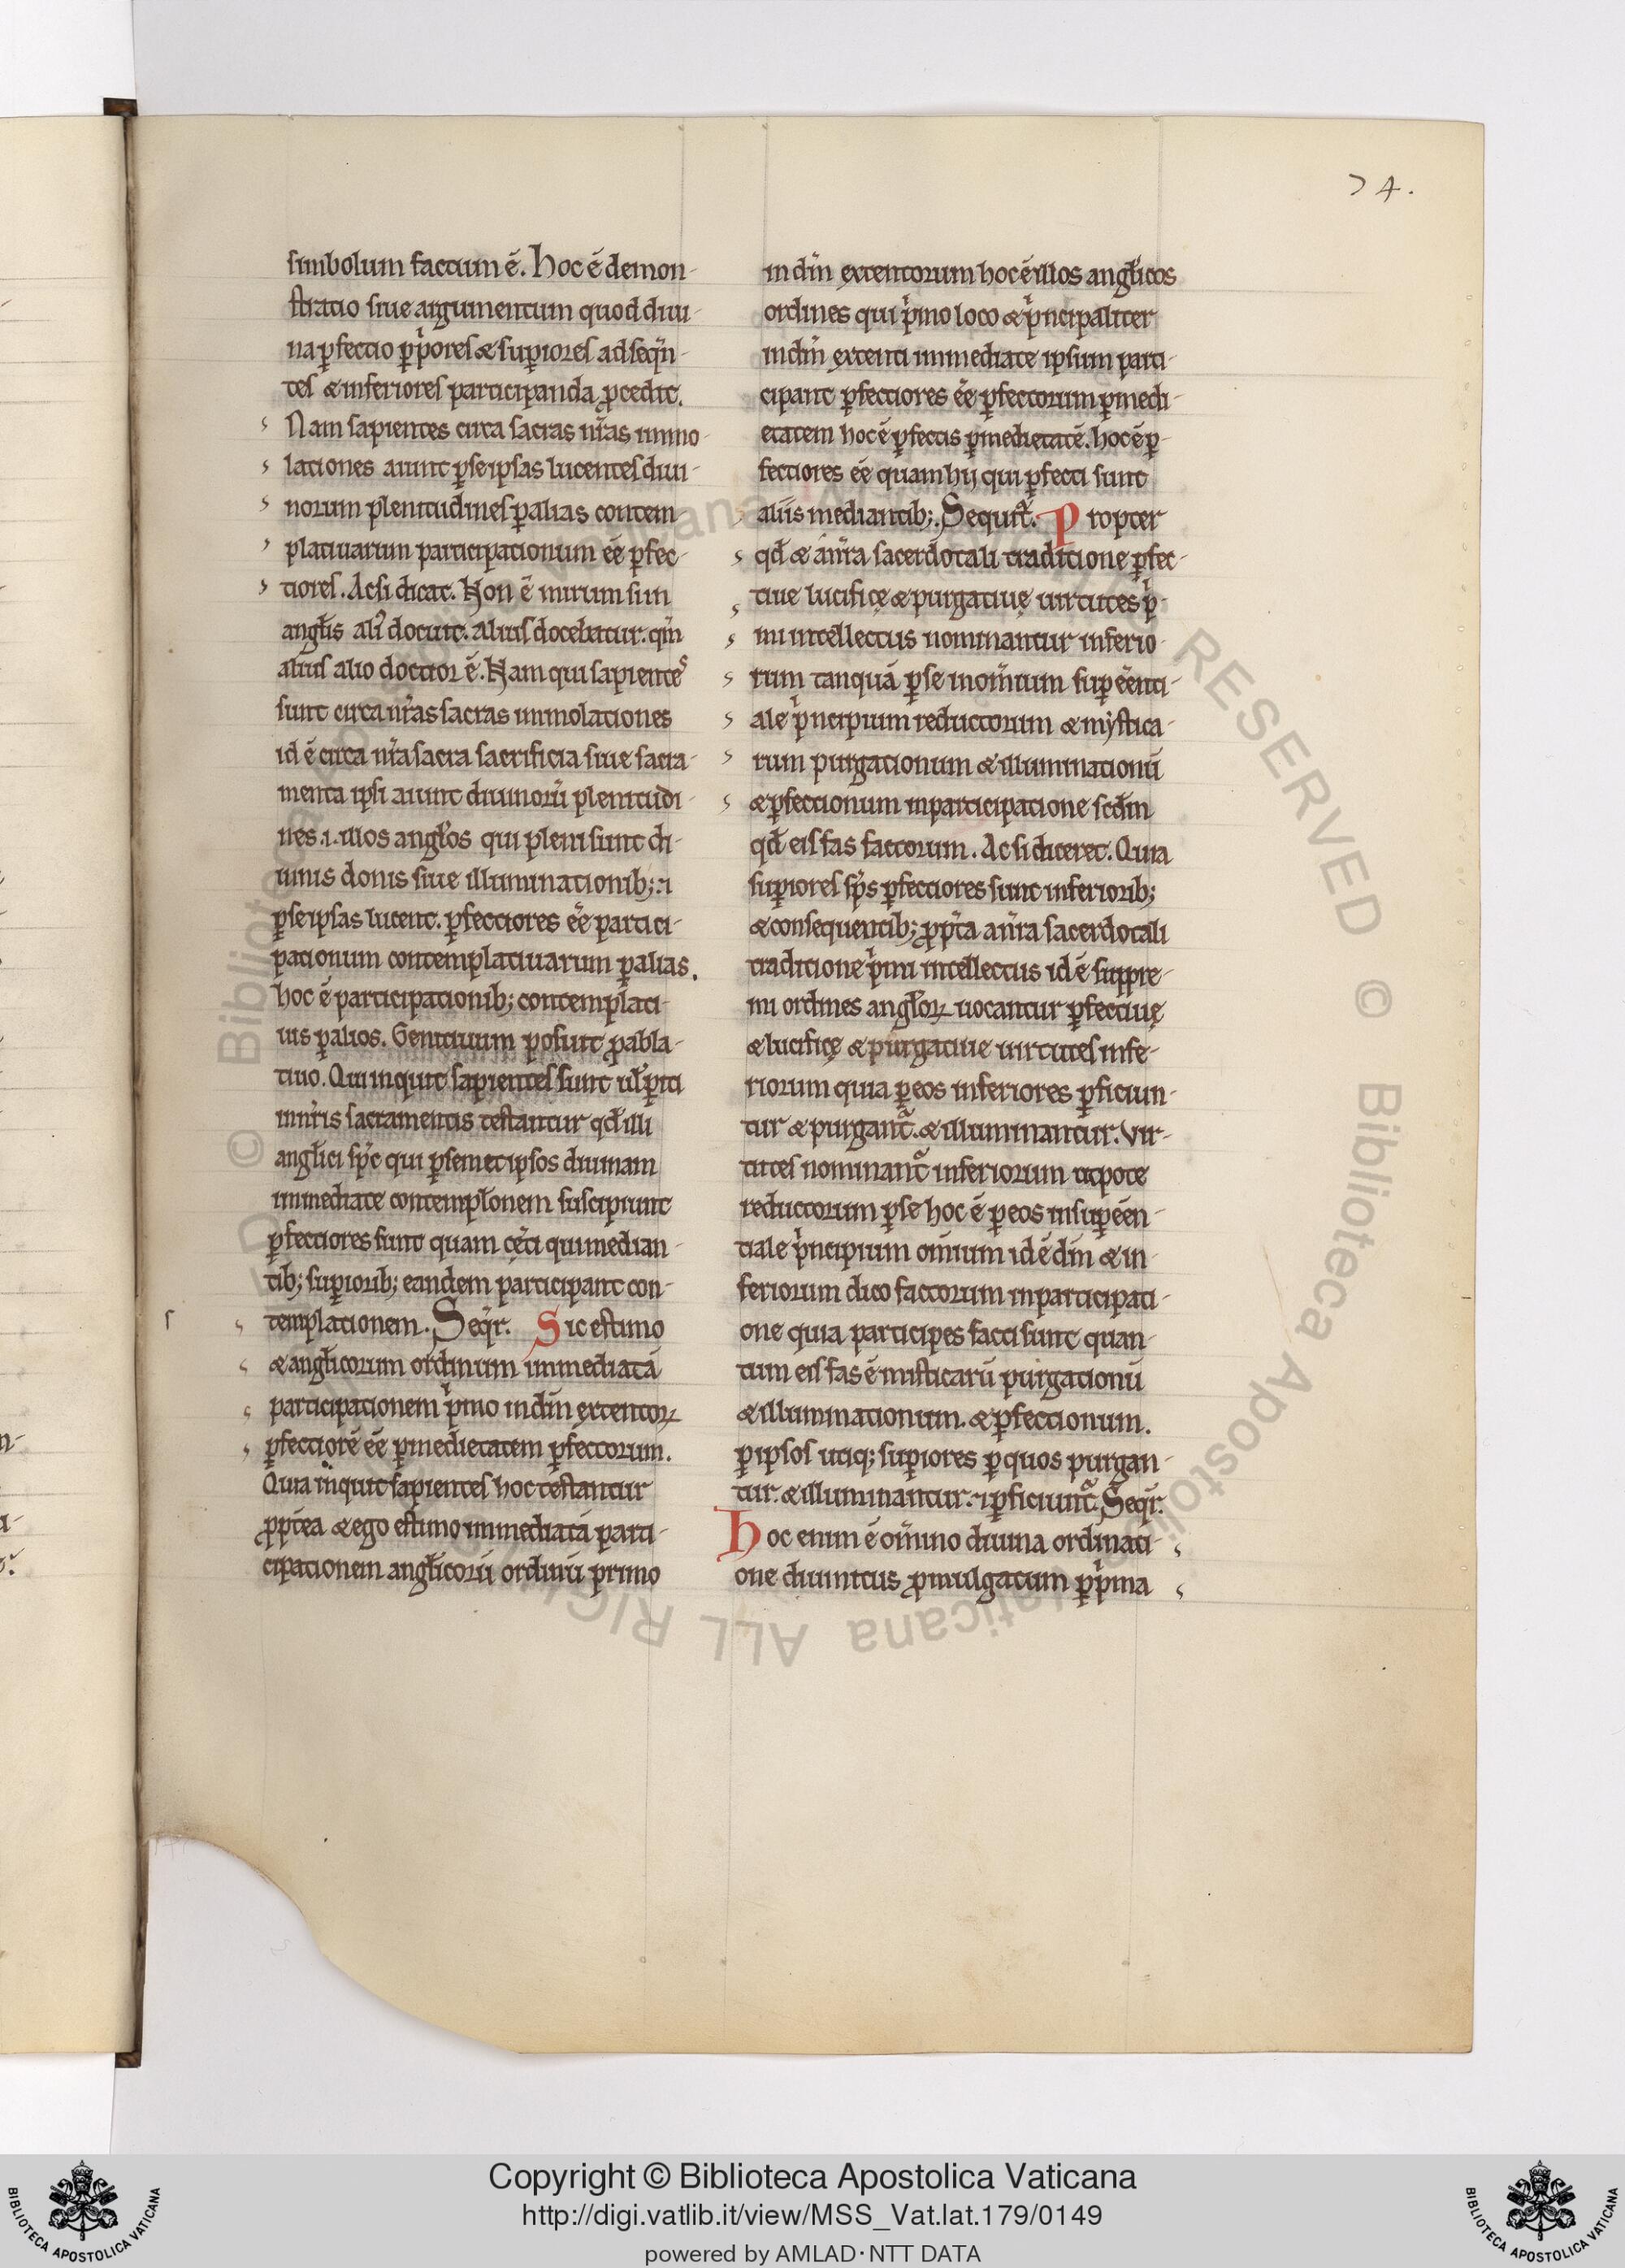 74.
simbolum factum ē. Hoc ē demon-
stratio siue argumentum quod diui-
na ꝑfectio ꝑ pͥores & suꝑiores ad seqͣn-
tes & inferiores participanda ꝓcedit.
Nam sapientes circa sacras nr̄as immo-
lationes aiunt ꝑ se ipsas lucentes diui-
norum plenitudines ꝑ alias contem-
platiuarum participationum ēē ꝑfec-
tiores. Ac si dicat. Non ē mirum si in
angłis aliꝰ docuit. alius docebatur. qm̄
alius alio doctior ē. Nam qui sapientes
sunt circa nr̄as sacras immolationes
id ē circa nr̄a sacra sacrificia siue sacra-
menta ipsi aiunt diuinorū plenitudi-
nes .i. illos angłos qui pleni sunt di-
uinis donis siue illuminationib; ⁊
ꝑ se ipsas lucent. ꝑfectiores ēē partici-
pationum contemplatiuarum ꝑ alias.
hoc ē participationib; contemplati-
uis ꝑ alios. Genitiuum posuit ꝓ abla-
tiuo. Qui inquit sapientes sunt uł ꝑiti
in nr̄is sacramentis testantur qd̄ illi
angłici sp̄c qui ꝑ semet ipsos diuinam
immediate contempłonem suscipiunt
ꝑfectiores sunt quam cęt̄i qui median-
tib; suꝑiorib; eandem participant con-
templationem. Seqͥr. Sic estimo
& angłicorum ordinum immediatā
participationem pͥmo in dm̄ extentoꝝ
ꝑfectiorē ēē ꝑ medietatem ꝑfectorum.
Quia inquit sapientes hoc testantur
ꝓpt̄ea & ego estimo immediatā parti-
cipationem angłicorū ordinū primo
in dm̄ extentorum hoc ē illos angłicos
ordines qui pͥmo loco & pͥncipaliter
in dm̄ extenti immediate ipsum parti-
cipant ꝑfectiores ēē ꝑfectorum ꝑ medi-
etatem hoc ē ꝑfectis ꝑ medietatē. hoc ē ꝑ-
fectiores ēē quam hij qui ꝑfecti sunt
aliis mediantib;. Sequit᷑. Propter
qd̄ & a nr̄a sacerdotali traditione ꝑfec-
tiue lucificę & purgatiuę uirtutes pͥ-
mi intellectus nominantur inferio-
rum tanquā ꝑ se in om̄ium suꝑēēnti-
ale pͥncipium reductorum & mystica-
rum purgationum & illuminationū
& ꝑfectionum in participatione scd̄m
qd̄ eis fas factorum. Ac si diceret. Quia
suꝑiores sp̄s ꝑfectiores sunt inferiorib;
& consequentib; ꝓpt̄a a nr̄a sacerdotali
traditione pͥmi intellectus id ē suppre-
mi ordines angłoꝝ uocantur ꝑfectiuę
& lucificę & purgatiue uirtutes infe-
riorum quia ꝑ eos inferiores ꝑficiun-
tur & purgant᷑. & illuminantur. Vir-
tutes nominant᷑ inferiorum utpote
reductorum ꝑ se hoc ē ꝑ eos in suꝑēēn-
tiale pͥncipium om̄ium id ē dm̄ & in-
feriorum dico factorum in participati-
one quia participes facti sunt quan-
tum eis fas ē misticarū purgationū
& illuminationum. & ꝑfectionum.
ꝑ ipsos utiq; suꝑiores ꝑ quos purgan-
tur. & illuminantur. ⁊ ꝑficiunt᷑. Seqͥr.
Hoc enim ē om̄ino diuina ordinati-
one diuinitus ꝓmulgatum ꝑ pͥma
© Biblioteca Apostolica Vaticana ALL RIGHTS RESERVED
Copyright © Biblioteca Apostolica Vaticana
http://digi.vatlib.it/view/MSS_Vat.lat.179/0149
powered by AMLAD·NTT DATA
BIBLIOTECA APOSTOLICA VATICANA
BIBLIOTECA APOSTOLICA VATICANA